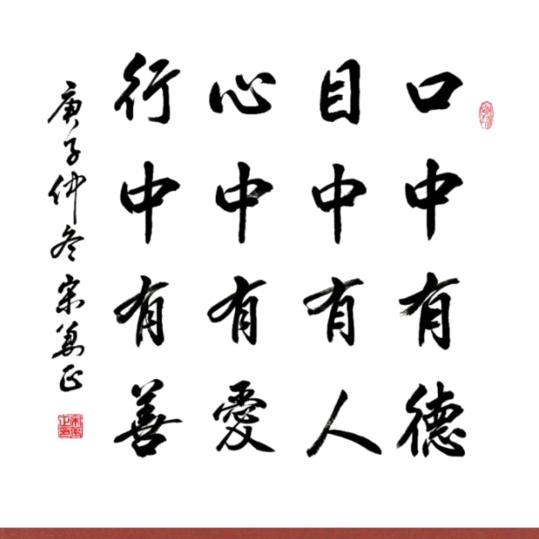 口中有德
目中有人
心中有愛
行中有善
庚子仲冬宋萬正